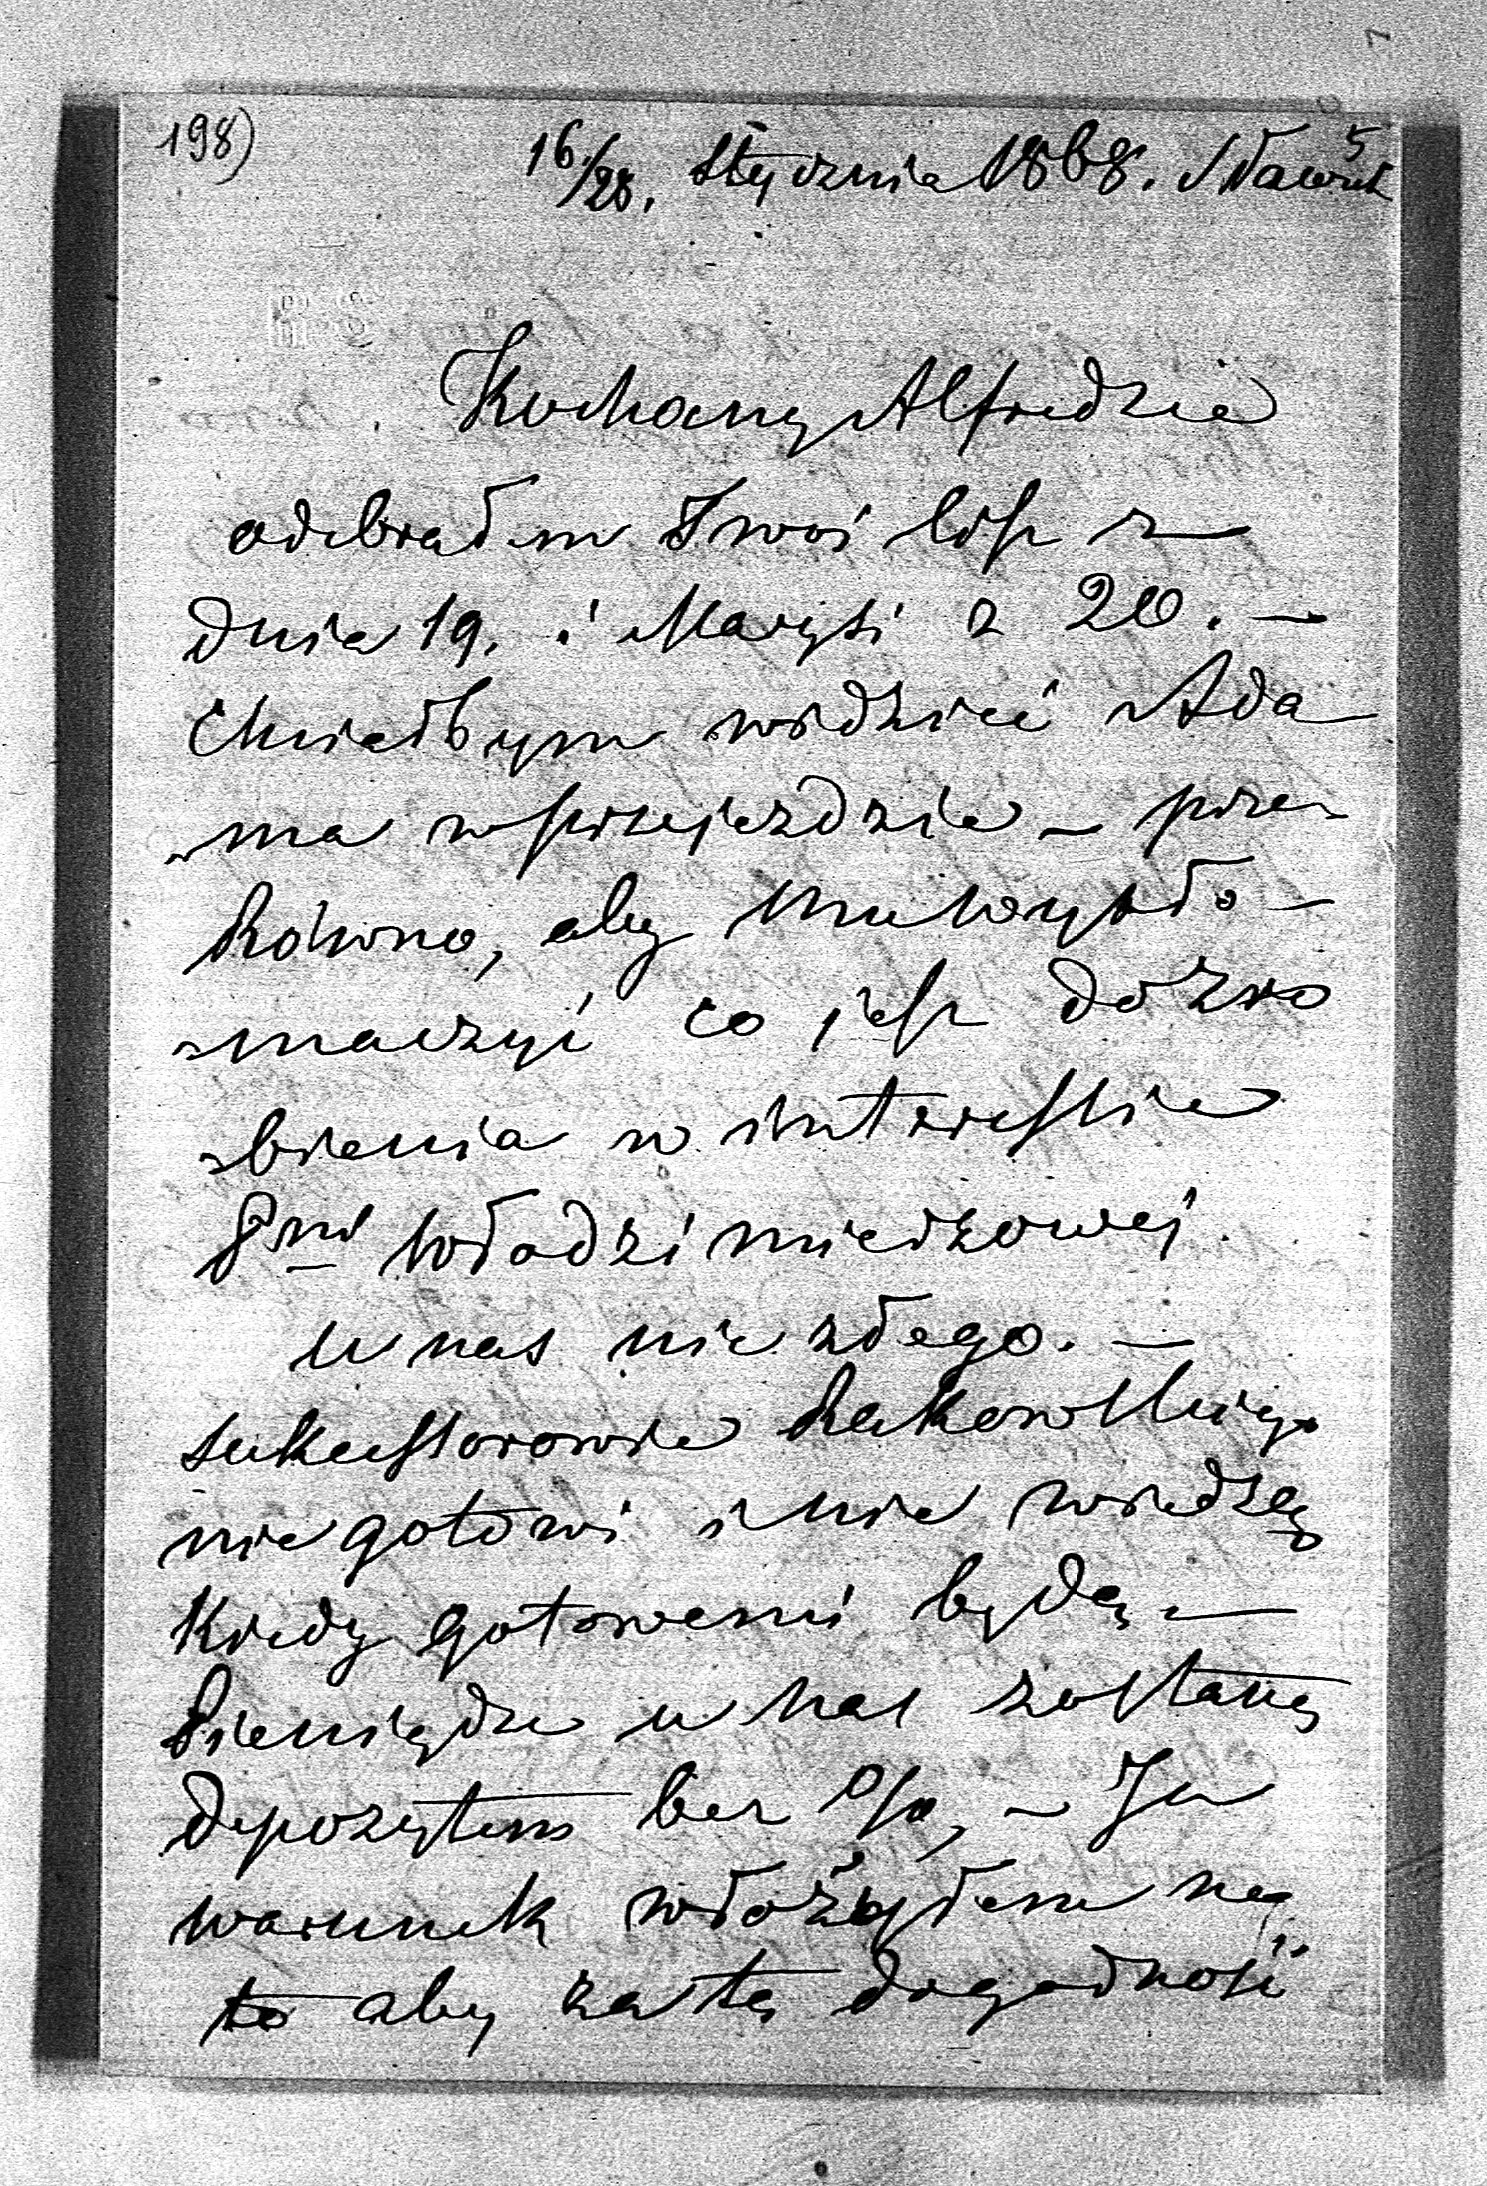 198)
16/28. Stycznia 1868. Nawóz 5
Kochany Alfredzie
odebrałem Twój list z
dnia 19. i Marysi z 20. —
Chciałbym widzieć Ada
-ma w przejeździe — prze-
konno, aby mu wytło-
-maczyć co jest do zro
-bienia w interessie
Pni Włodzimierzowej.
U nas nic złego. —
Sukcessorowie Rakowskiego
nie gotowi i nie wiedzą
kiedy gotowemi będą —
Pieniądze u nas zostaną
depozytem bez %, — Ja
warunek włożyłem na
to aby za tę dogodność